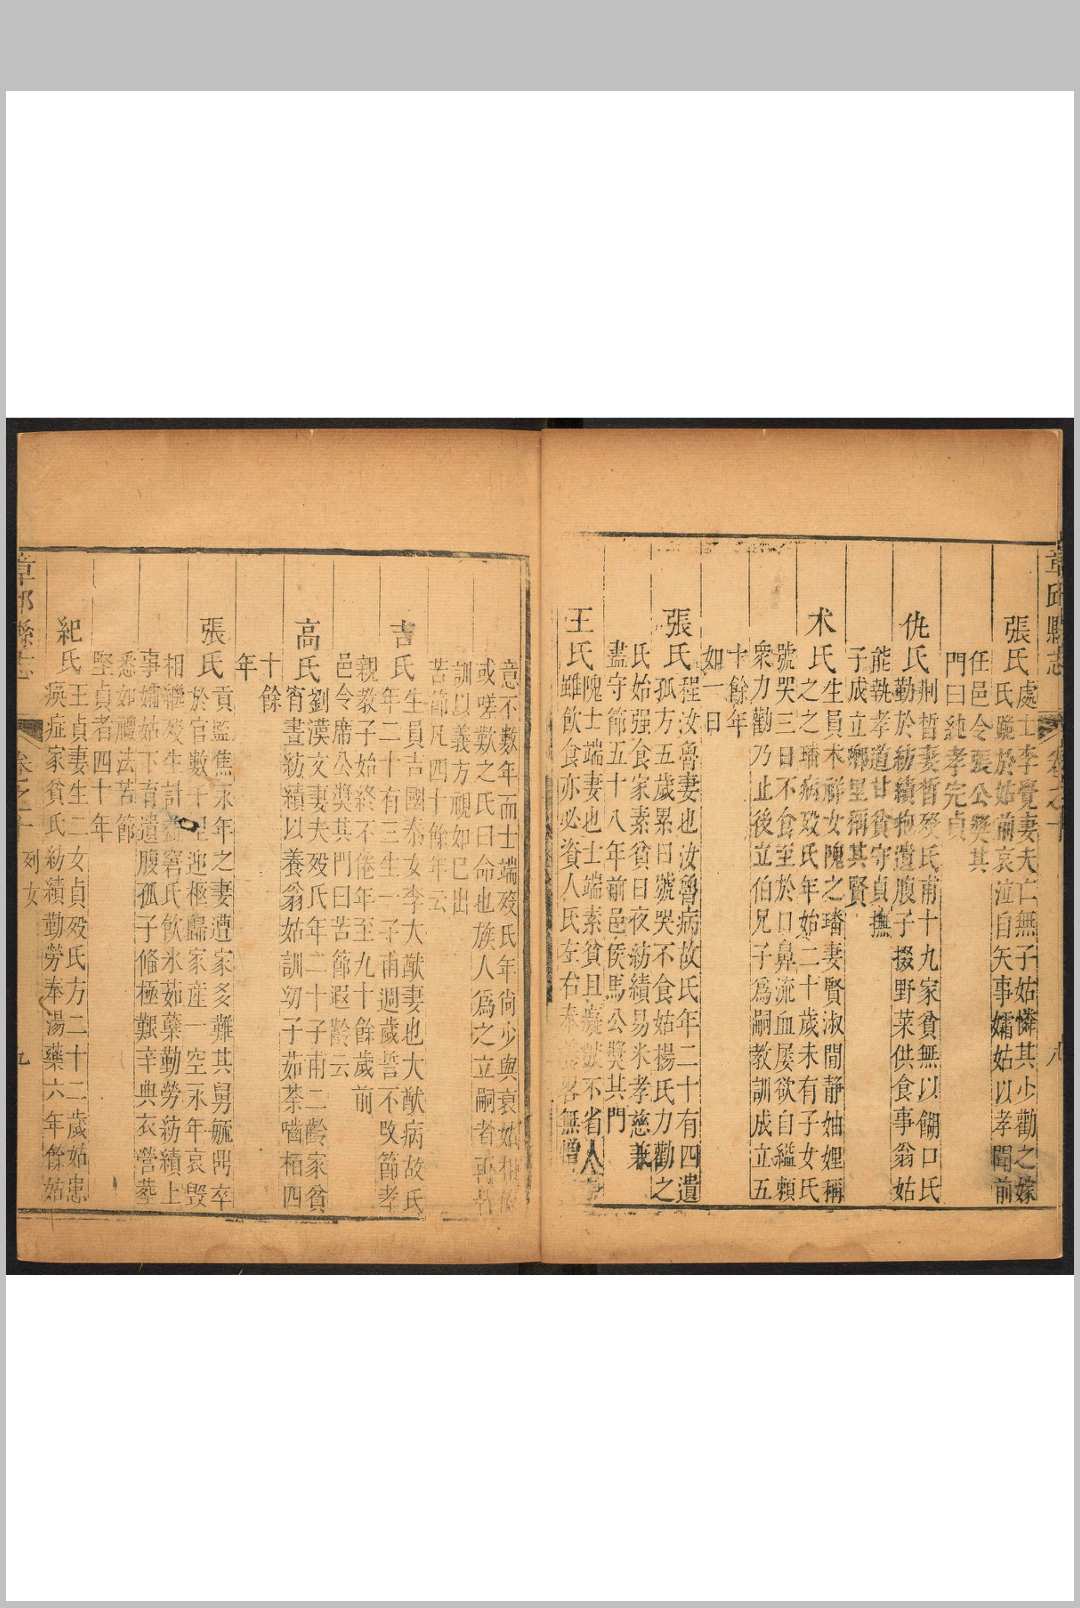 章邱縣志
卷之十
八
張氏
處士李覺妻夫亡無子姑憐其少勸之嫁
氏跪於姑前哀泣自矢事孀姑以孝聞前
任邑令張公獎其
門曰純孝完貞
仇氏
荆哲妻哲歿氏甫十九家貧無以餬口氏
勤於紡績抱遺腹子掇野菜供食事翁姑
能執孝道甘貧守貞撫
子成立鄉里稱其賢
术氏
生員术嶭女隗之璠妻賢淑閒靜妯娌稱
之之璠病歿氏年始二十歲未有子女氏
號哭三日不食至於口鼻流血屢欲自縊賴
衆力勸乃止後立伯兄子爲嗣教訓成立五
十餘年
如一日
張氏
程汝魯妻也汝魯病故氏年二十有四遺
孤方五歲累日號哭不食姑楊氏力勸之
氏始强食家素貧日夜紡績易米孝慈兼
盡守節五十八年前邑侯馬公獎其門
王氏
隗士端妻也士端素貧且癡獃不省人事
雖飲食亦必資人氏左右奉 畧無憎
意不數年而士端歿氏年尙少與衰姑相依
或嗟歎之氏曰命也族人爲之立嗣者
訓以義方視如已出
苦節凡四十餘年云
吉氏
生員吉國泰女李大猷妻也大猷病故氏
年二十有三生一子甫週歲誓不改節孝
親教子始終不倦年至九十餘歲前
邑令席公獎其門曰苦節遐齡云
高氏
劉漢文妻夫歿氏年二十子甫二齡家貧
宵晝紡績以養翁姑訓幼子茹荼嚙栢四
十餘
年
張氏
貢監焦永年之妻遭家多難其舅毓卿卒
於官數千里迎柩歸家産一空永年哀毁
相繼歿生計 窘氏飲氷茹蘗勤勞紡績上
事孀姑下育遺腹孤子脩極艱辛典衣營葬
悉如禮法苦節
堅貞者四十年
紀氏
王貞妻生二女貞歿氏方二十二歲姑患
痰症家貧氏紡績勤勞奉湯藥六年餘姑
章邱縣志
卷之十
列女
九